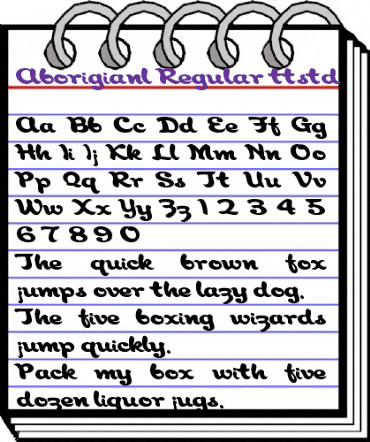 Aborigianl Regular ttstd
Aa Bb Cc Dd Ee Ff Gg
Hh Ii Jj Kk Ll Mm Nn Oo
Pp Qq Rr Ss Tt Uu Vv
Ww Xx Yy Zz 1 2 3 4 5
6 7 8 9 0
The quick brown fox
jumps over the lazy dog.
The five boxing wizards
jump quickly.
Pack my box with five
dozen liquor jugs.